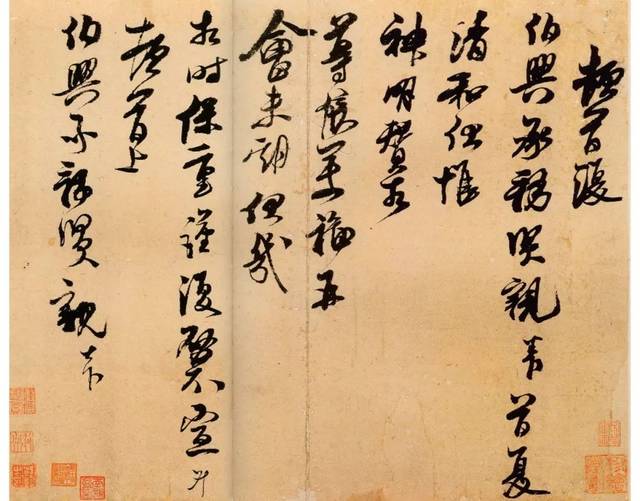 頓首復
伯興承務賢親 芾 首夏
清和伏惟
神明贊相
尊候萬福再
會未期但幾
以時保重謹復啓不宣 芾
頓首上
伯興承務賢親